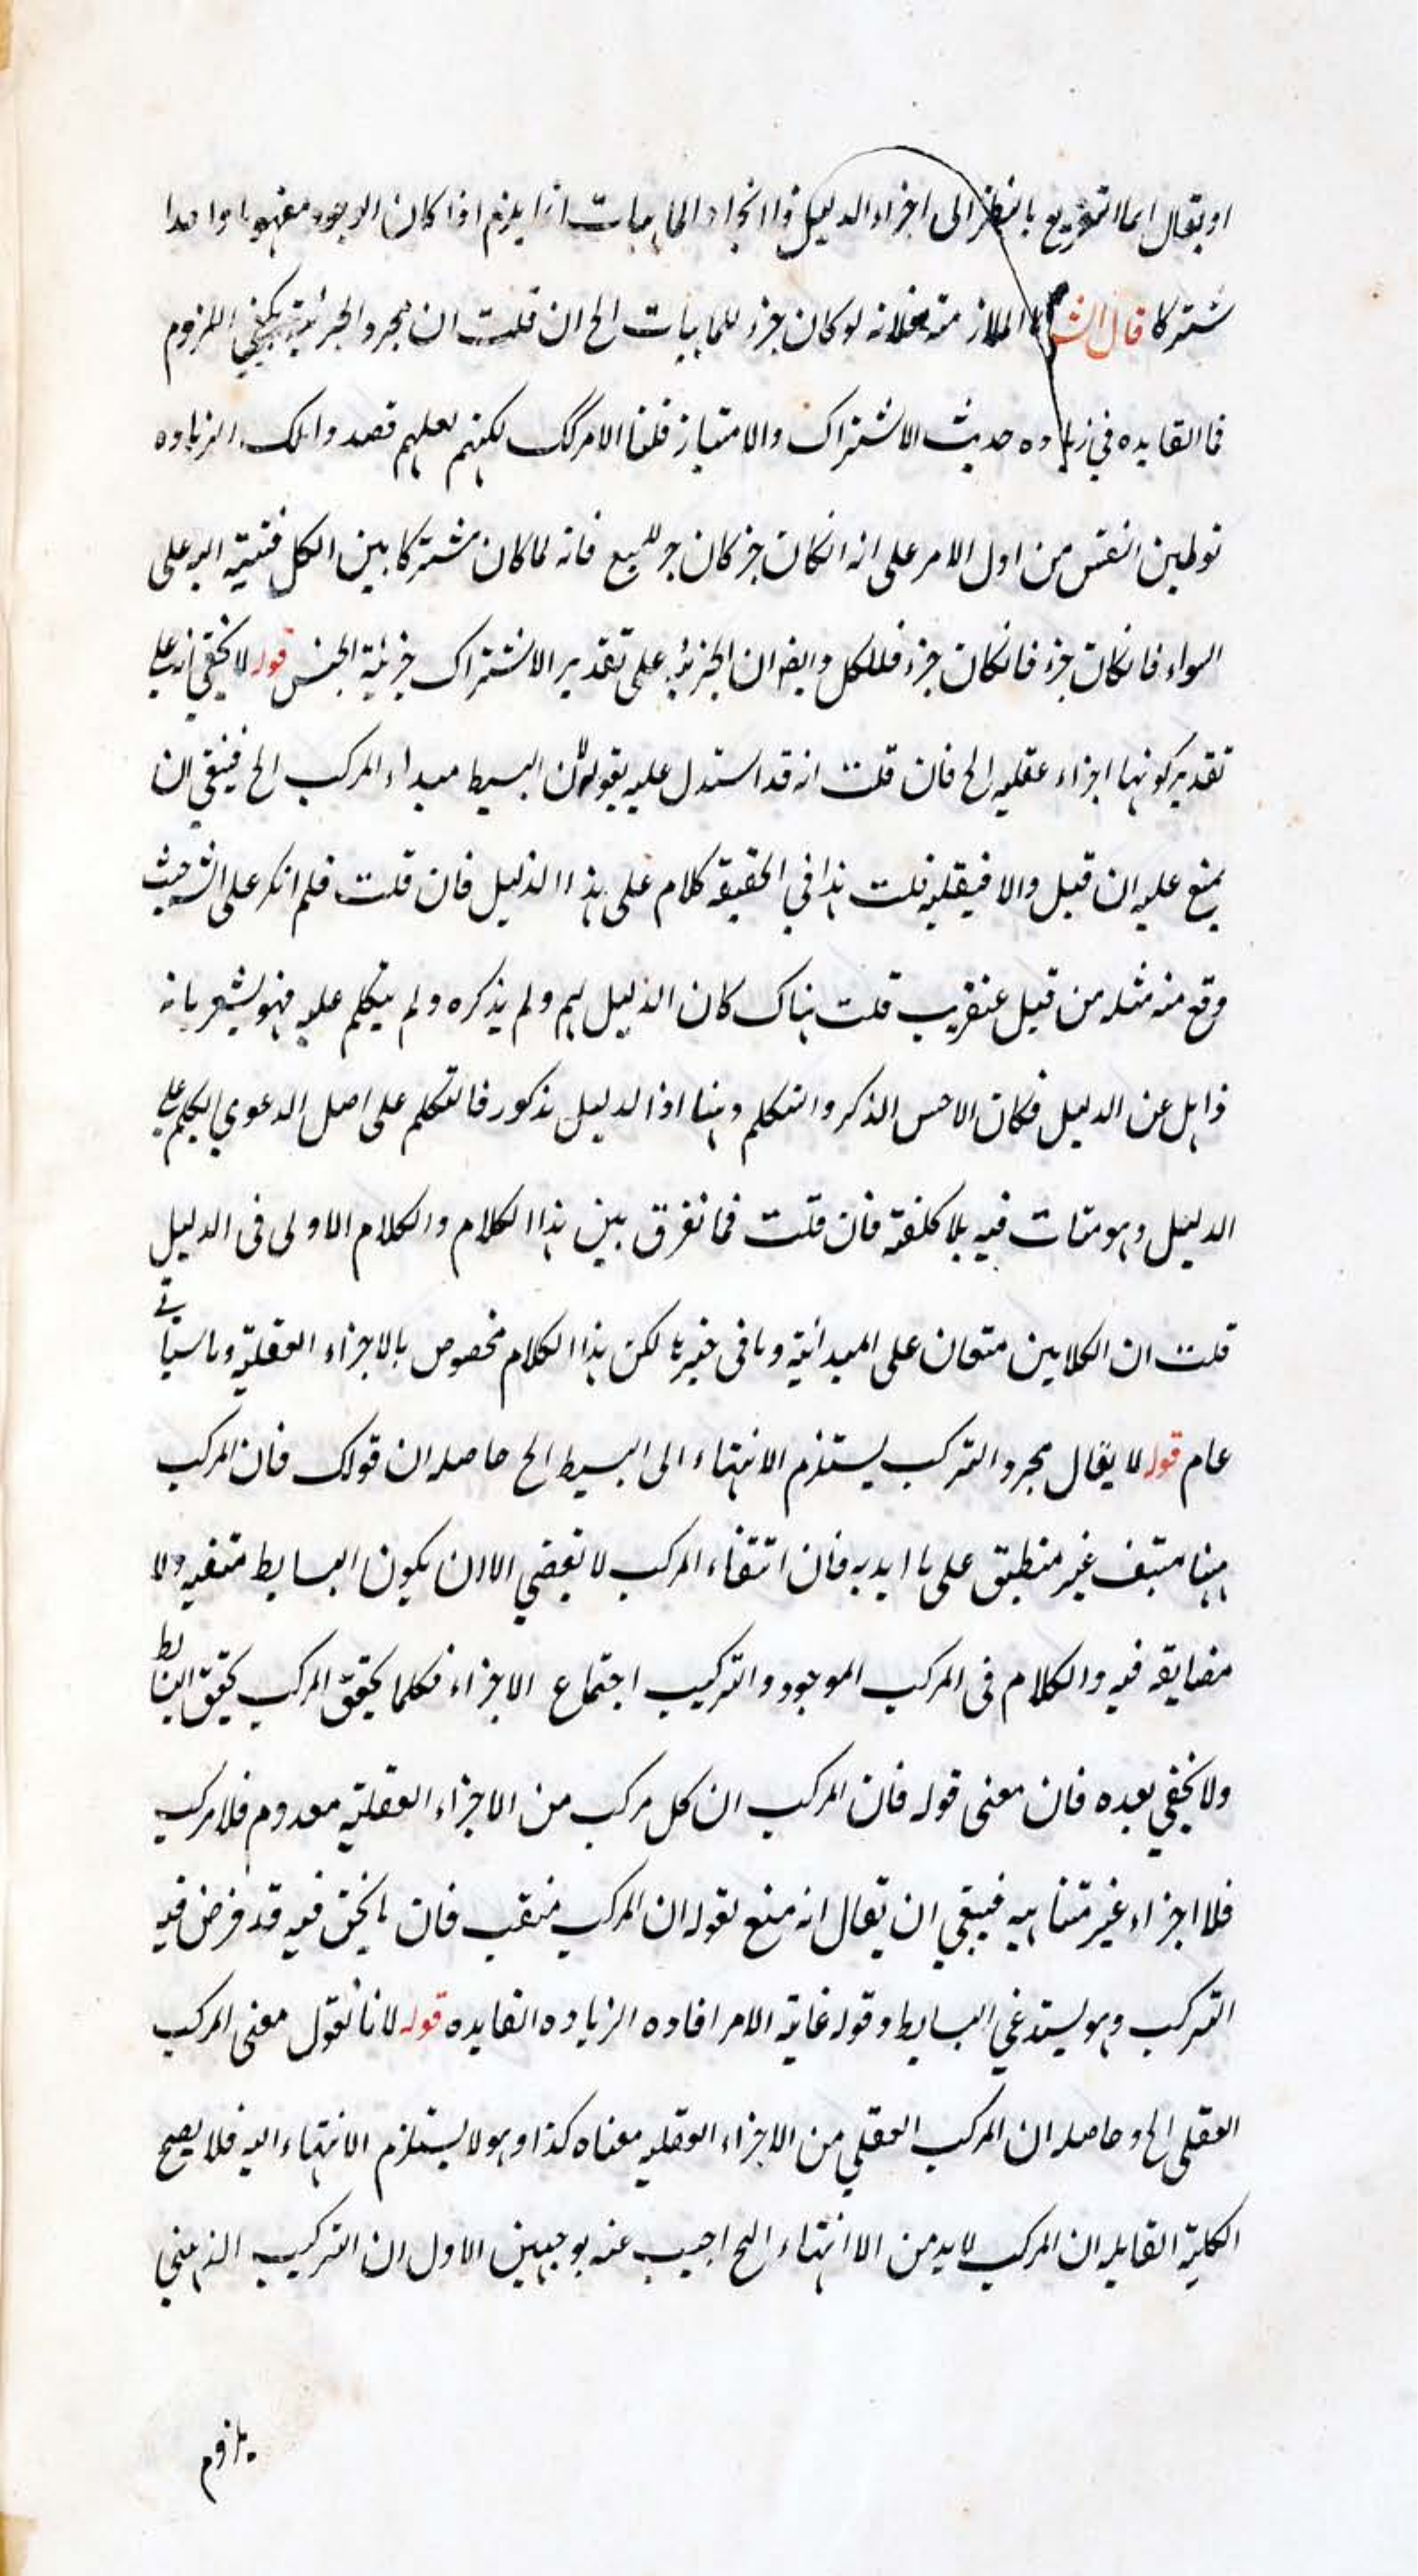 او يقال انما التفريع بالنظر الى اجزاء الدليل واتحاد الماهيات انما يلزم اذا كان الوجود مفهوما واحدا
مشتركا قال الش الملازمة فلانه لو كان جزء للماهيات الخ ان قلت ان مجرد الجزئية يكفي اللزوم
فما الفايده في زياده حديث الاشتراك والامتياز قلنا الامر كك لكنهم لعلهم قصدوا بتلك الزياده
توطين النفس من اول الامر على انه ان كان جزء كان جزء للجميع فانه لما كان مشتركا بين الكل فنسبته اليه على
السواء فان كان جزء فان كان جزء فللكل وايضا ان الجزئية على تقدير الاشتراك جزئية الجنس قوله لا يخفى انه على
تقدير كونها اجزاء عقليه الخ فان قلت انه قد استدل عليه بقوله لان البسيط مبداء المركب الخ فينبغي ان
يمنع عليه ان قبل والا فيقبله قلت هذا في الحقيقة كلام على هذا الدليل فان قلت فلم انكر على الش حيث
وقع منه مثله من قبل عنقريب قلت هناك كان الدليل لهم ولم يذكره ولم يتكلم عليه فهو يشعر بانه
ذاهل عن الدليل فكان الاحسن الذكر والتكلم وههنا اذ الدليل مذكور فالتكلم على اصل الدعوي تكلم على
الدليل وهو متات فيه بلا كلفة فان قلت فما نفرق بين هذا الكلام والكلام الاولى في الدليل
قلت ان الكلامين متعان على المبدائية وما في خيرها لكن هذا الكلام مخصوص بالاجزاء العقلية وما سياتي
عام قوله لا يقال مجرد التركب يستلزم الانتهاء الى البسيط الخ حاصله ان قولك فان المركب
ههنا منتف غير منطبق على ما ايد به فان انتفاء المركب لا يقتضي الا ان يكون البسايط منتفيه ولا
مضايقه فيه والكلام في المركب الموجود والتركيب اجتماع الاجزاء فكلما تحقق المركب تحقق البسايط
ولا يخفى بعده فان معنى قوله فان المركب ان كل مركب من الاجزاء العقلية معدوم فلا مركب
فلا اجزاء غير متناهيه فينبغي ان يقال انه منع لقوله ان المركب منتف فان ما نحن فيه قد فرض فيه
التركب وهو يستدعي البسايط وقوله غاية الامر افاده الزياده الفايده قوله لانا نقول معنى المركب
العقلى الخ وحاصله ان المركب العقلي من الاجزاء العقليه معناه كذا وهو لا يستلزم الانتهاء اليه فلا يصح
الكلية القايله ان المركب لا بد من الانتهاء الخ اجيب عنه بوجهين الاول ان التركيب الذهني